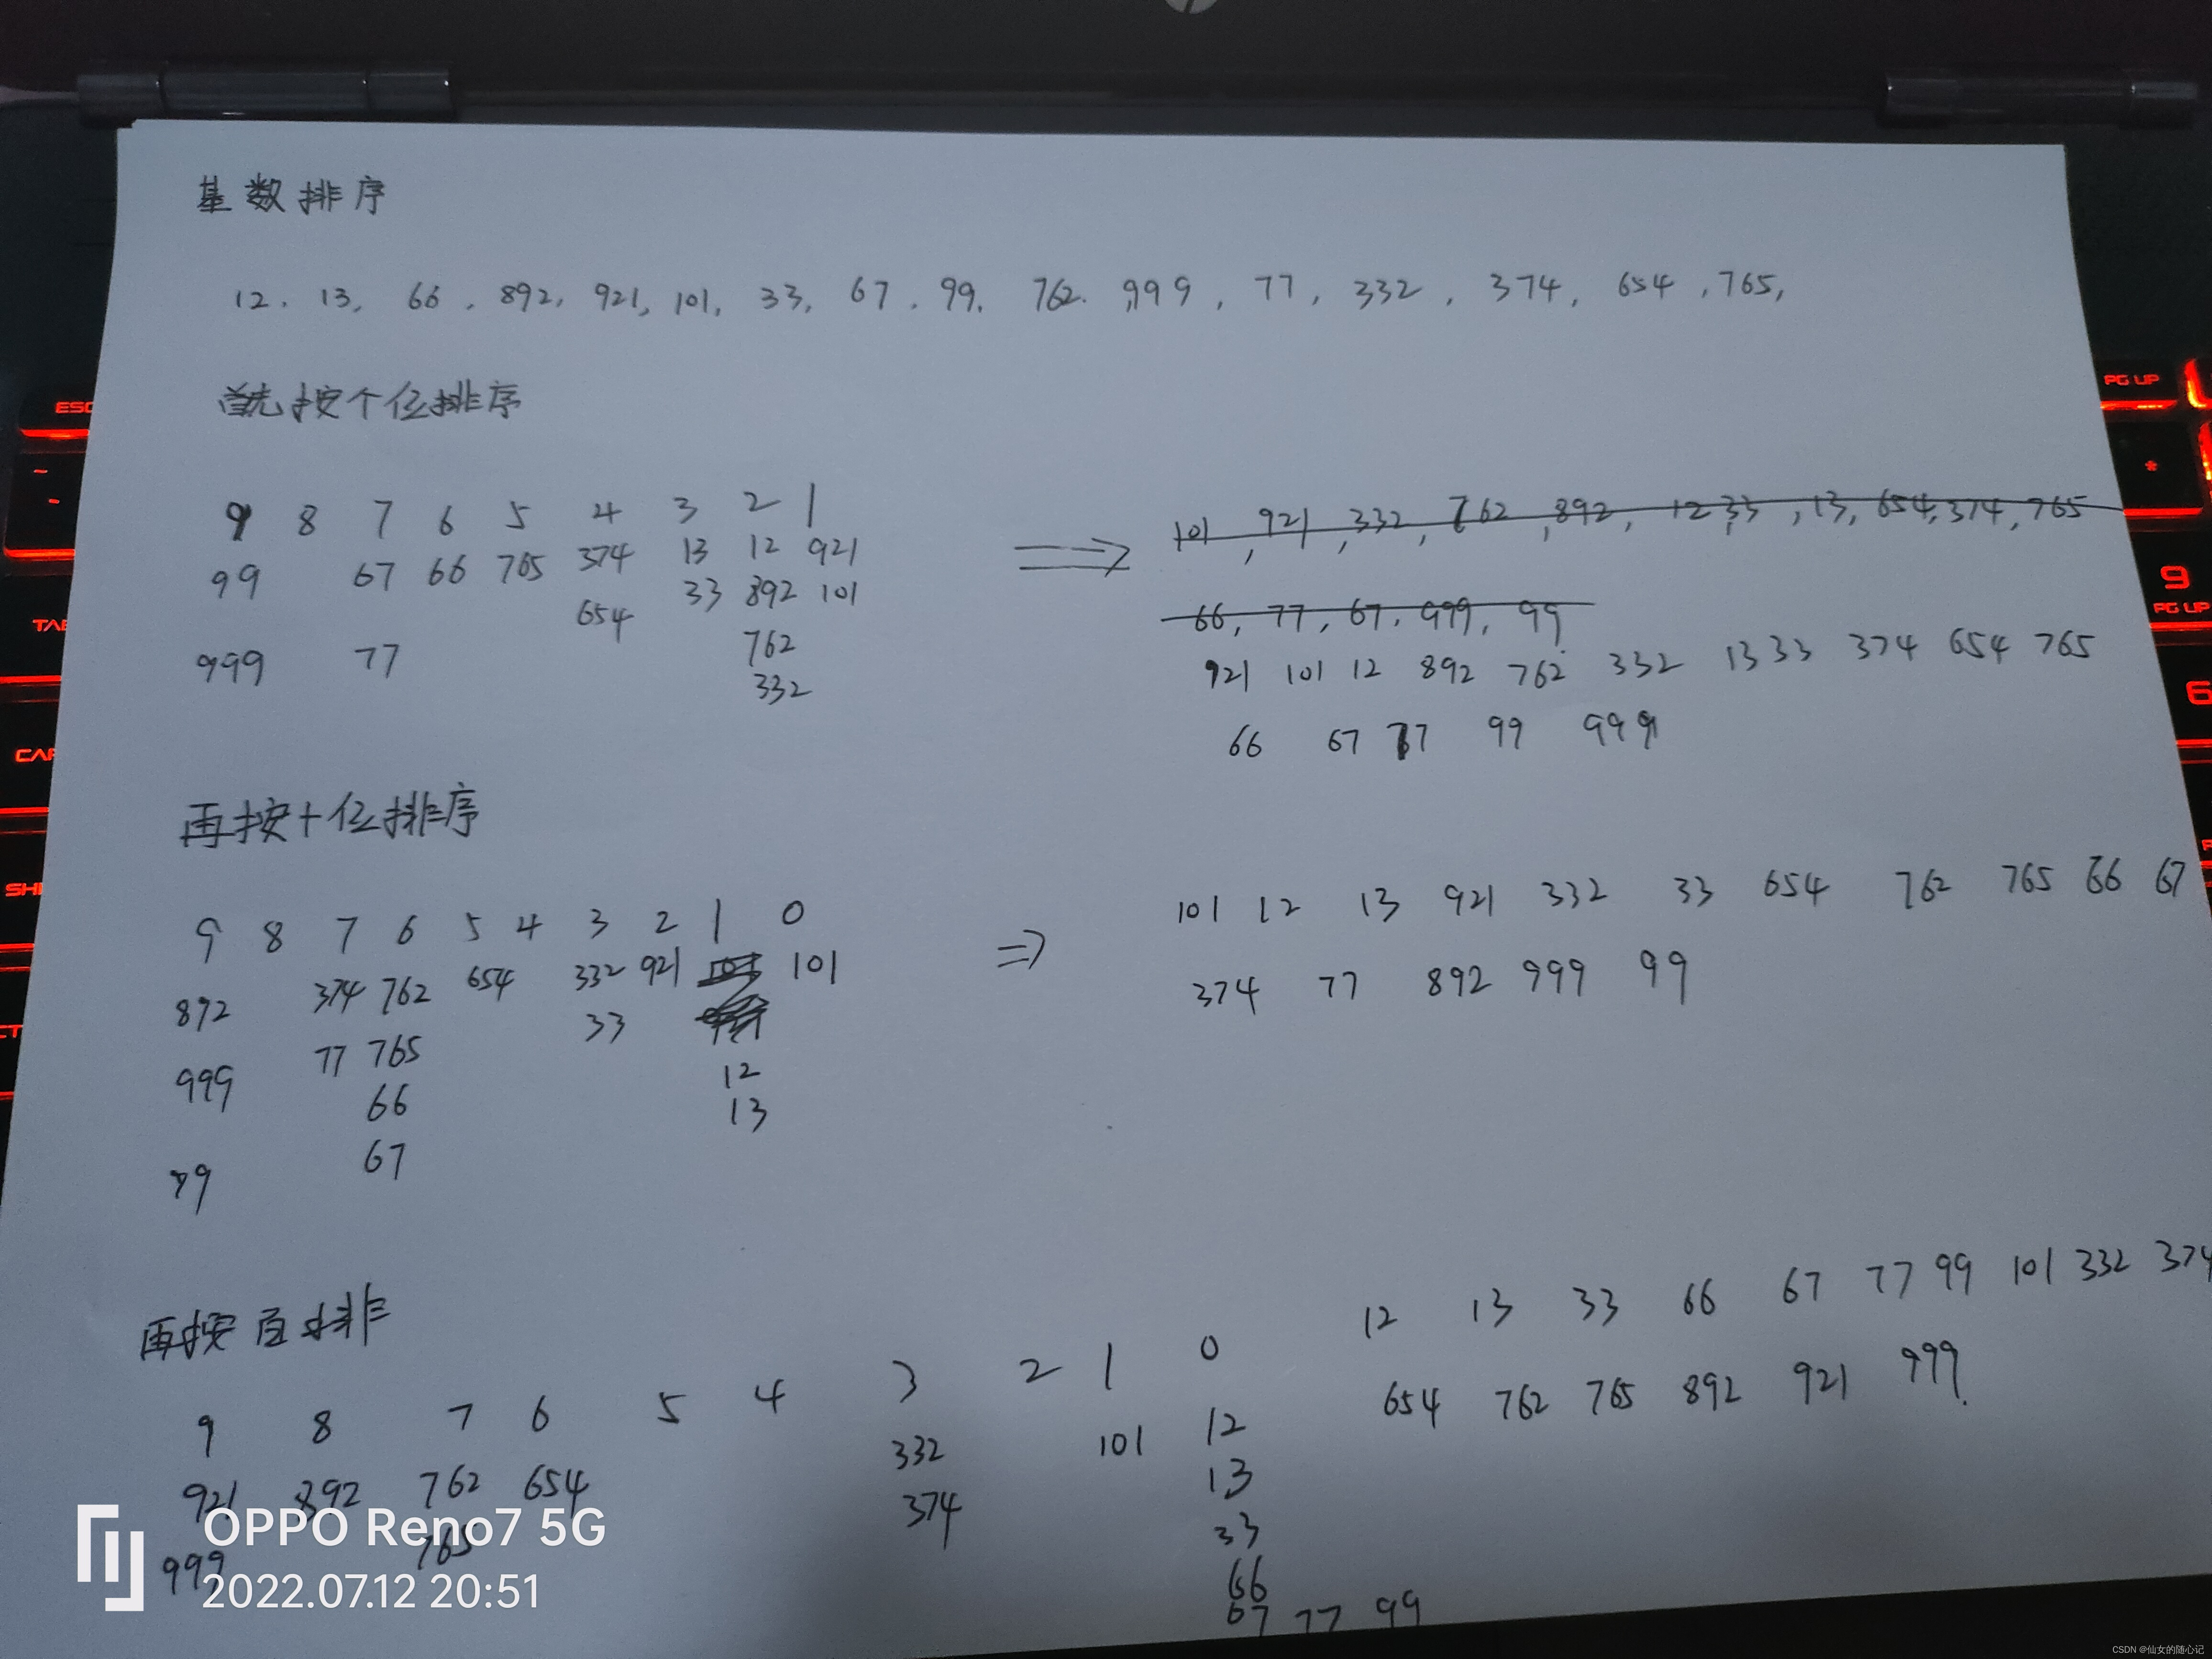 基数排序
12. 13, 66, 892, 921, 101, 33, 67, 99, 762. 999, 77, 332, 374, 654, 765,
首先按个位排序
9 8 7 6 5 4 3 2 1
99 67 66 765 374 13 12 921
654 33 892 101
999 77 762
332
⇒ 101, 921, 332, 762, 892, 12, 33, 13, 654, 374, 765
66, 77, 67, 999, 99
921 101 12 892 762 332 13 33 374 654 765
66 67 77 99 999
再按十位排序
9 8 7 6 5 4 3 2 1 0
892 374 762 654 332 921 101
999 77 765 33
66 12
67 13
99
⇒ 101 12 13 921 332 33 654 762 765 66 67
374 77 892 999 99
再按百排
9 8 7 6 5 4 3 2 1 0
921 892 762 654 332 101 12
999 765 374 13
33
66
67 77 99
12 13 33 66 67 77 99 101 332 374
654 762 765 892 921 999.
ESC
TAB
PG UP
*
9
PG UP
6
OPPO Reno7 5G
2022.07.12 20:51
CSDN @仙女的随心记